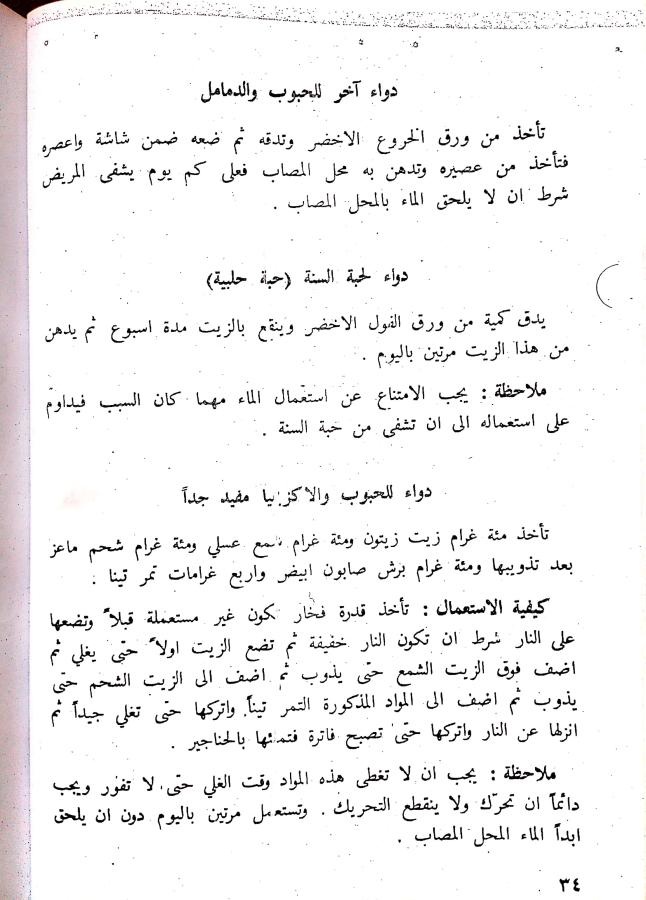 دواء آخر للحبوب والدمامل
تأخذ من ورق الخروع الاخضر وتدقه ثم ضعه ضمن شاشة واعصره
فتأخذ من عصيره وتدهن به محل المصاب فعلى كم يوم يشفى المريض
شرط ان لا يلحق الماء بالمحل المصاب .
دواء لحبة السنة (حبة حلبية)
يدق كمية من ورق الفول الاخضر وينقع بالزيت مدة اسبوع ثم يدهن
من هذا الزيت مرتين باليوم .
ملاحظة : يجب الامتناع عن استعمال الماء مهما كان السبب فيداوم
على استعماله الى ان تشفى من حبة السنة .
دواء للحبوب والاكزيا مفيد جداً
تأخذ مئة غرام زيت زيتون ومئة غرام شمع عسلي ومئة غرام شحم ماعز
بعد تذويبها ومئة غرام برش صابون ابيض واربع غرامات تمر تينا .
كيفية الاستعمال : تأخذ قدرة فخار تكون غير مستعملة قبلاً وتضعها
على النار شرط ان تكون النار خفيفة ثم تضع الزيت اولاً حتى يغلي ثم
اضف فوق الزيت الشمع حتى يذوب ثم اضف الى الزيت الشحم حتى
يذوب ثم اضف الى المواد المذكورة التمر تيناً واتركها حتى تغلي جيداً ثم
انزلها عن النار واتركها حتى تصبح فاترة فتملئها بالحناجير .
ملاحظة : يجب ان لا تغطى هذه المواد وقت الغلي حتى لا تفور ويجب
دائماً ان تحرّك ولا ينقطع التحريك . وتستعمل مرتين باليوم دون ان يلحق
ابداً الماء المحل المصاب .
٣٤